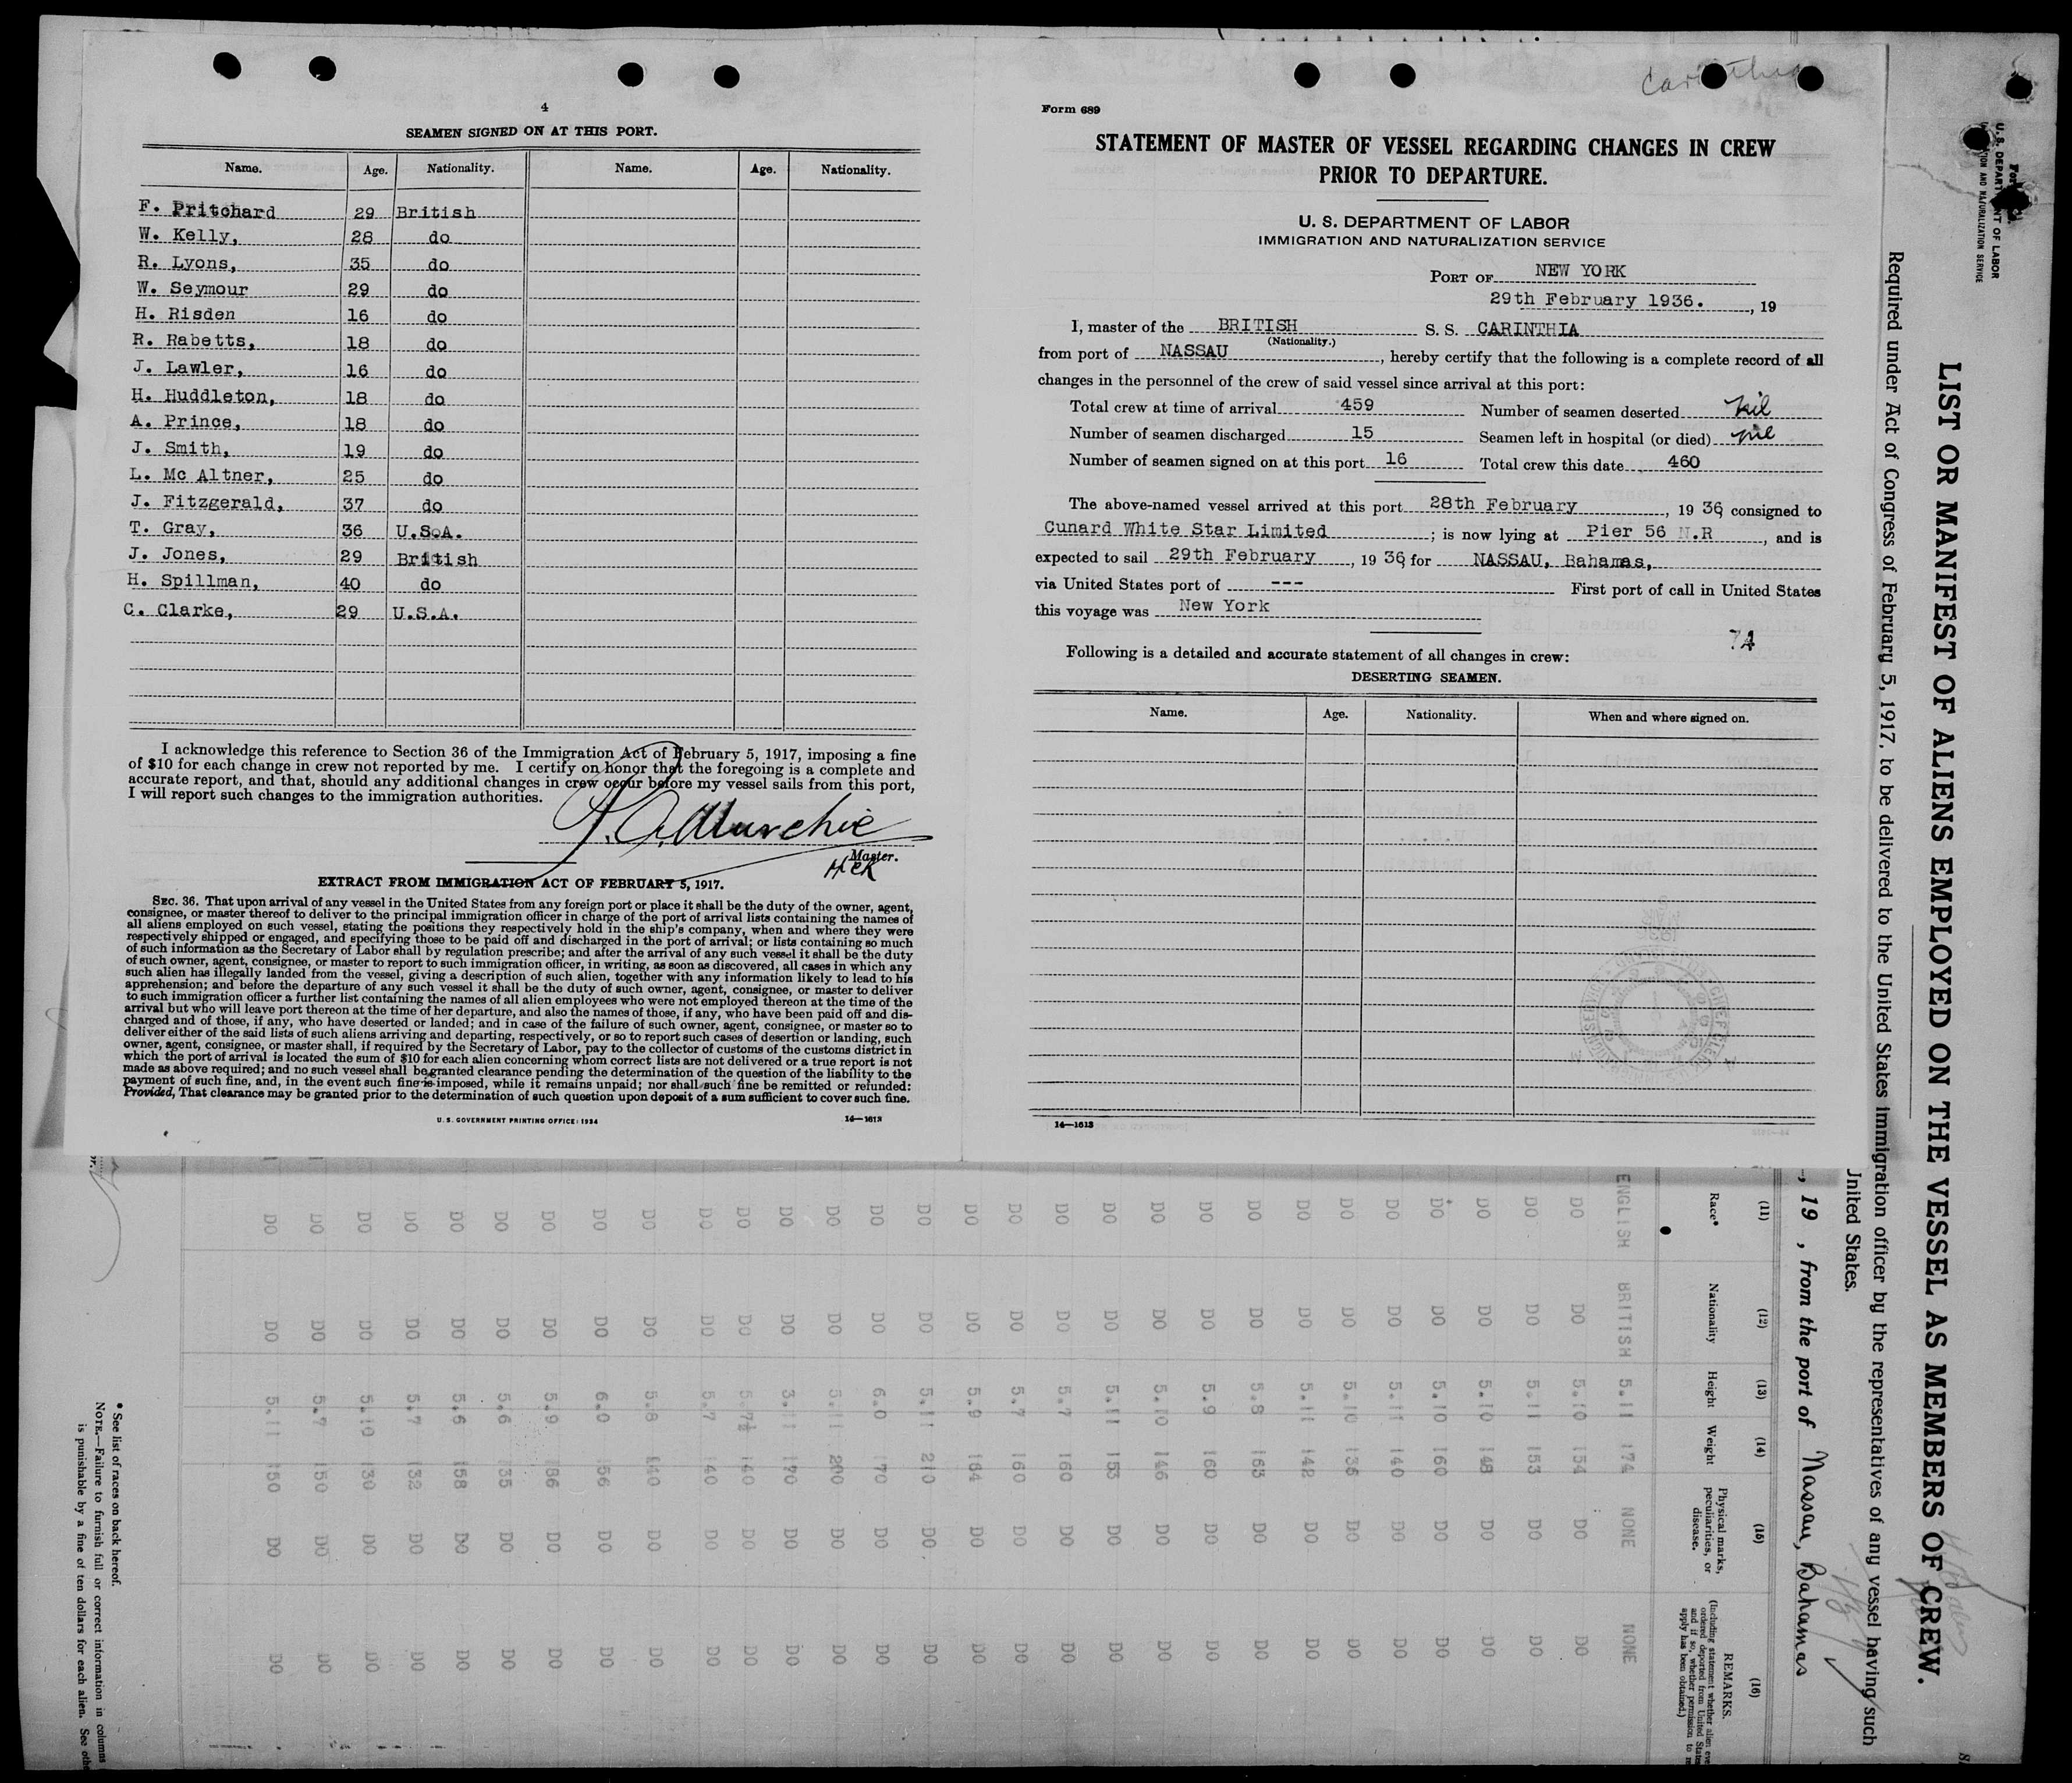 4
SEAMEN SIGNED ON AT THIS PORT.
Name. Age. Nationality. Name. Age. Nationality.
F. Pritchard 29 British
W. Kelly, 28 do
R. Lyons, 35 do
W. Seymour 29 do
H. Risden 16 do
R. Rabetts, 18 do
J. Lawler, 16 do
H. Huddleton, 18 do
A. Prince, 18 do
J. Smith, 19 do
L. Mc Altner, 25 do
J. Fitzgerald, 37 do
T. Gray, 36 U.S.A.
J. Jones, 29 British
H. Spillman, 40 do
C. Clarke, 29 U.S.A.
I acknowledge this reference to Section 36 of the Immigration Act of February 5, 1917, imposing a fine
of $10 for each change in crew not reported by me. I certify on honor that the foregoing is a complete and
accurate report, and that, should any additional changes in crew occur before my vessel sails from this port,
I will report such changes to the immigration authorities.
Murchie
Master.
EXTRACT FROM IMMIGRATION ACT OF FEBRUARY 5, 1917.
SEC. 36. That upon arrival of any vessel in the United States from any foreign port or place it shall be the duty of the owner, agent,
consignee, or master thereof to deliver to the principal immigration officer in charge of the port of arrival lists containing the names of
all aliens employed on such vessel, stating the positions they respectively hold in the ship's company, when and where they were
respectively shipped or engaged, and specifying those to be paid off and discharged in the port of arrival; or lists containing so much
of such information as the Secretary of Labor shall by regulation prescribe; and after the arrival of any such vessel it shall be the duty
of such owner, agent, consignee, or master to report to such immigration officer, in writing, as soon as discovered, all cases in which any
such alien has illegally landed from the vessel, giving a description of such alien, together with any information likely to lead to his
apprehension; and before the departure of any such vessel it shall be the duty of such owner, agent, consignee, or master to deliver
to such immigration officer a further list containing the names of all alien employees who were not employed thereon at the time of the
arrival but who will leave port thereon at the time of her departure, and also the names of those, if any, who have been paid off and dis-
charged and of those, if any, who have deserted or landed; and in case of the failure of such owner, agent, consignee, or master so to
deliver either of the said lists of such aliens arriving and departing, respectively, or so to report such cases of desertion or landing, such
owner, agent, consignee, or master shall, if required by the Secretary of Labor, pay to the collector of customs of the customs district in
which the port of arrival is located the sum of $10 for each alien concerning whom correct lists are not delivered or a true report is not
made as above required; and no such vessel shall be granted clearance pending the determination of the question of the liability to the
payment of such fine, and, in the event such fine is imposed, while it remains unpaid; nor shall such fine be remitted or refunded:
Provided, That clearance may be granted prior to the determination of such question upon deposit of a sum sufficient to cover such fine.
U. S. GOVERNMENT PRINTING OFFICE: 1934 14—1613
Carinthia
Form 689
STATEMENT OF MASTER OF VESSEL REGARDING CHANGES IN CREW
PRIOR TO DEPARTURE.
U. S. DEPARTMENT OF LABOR
IMMIGRATION AND NATURALIZATION SERVICE
PORT OF NEW YORK
29th February 1936. , 19
I, master of the BRITISH S. S. CARINTHIA
(Nationality.)
from port of NASSAU, hereby certify that the following is a complete record of all
changes in the personnel of the crew of said vessel since arrival at this port:
Total crew at time of arrival 459 Number of seamen deserted nil
Number of seamen discharged 15 Seamen left in hospital (or died) nil
Number of seamen signed on at this port 16 Total crew this date 460
The above-named vessel arrived at this port 28th February, 19 36, consigned to
Cunard White Star Limited; is now lying at Pier 56 N.R, and is
expected to sail 29th February, 19 36, for NASSAU, Bahamas,
via United States port of --- First port of call in United States
this voyage was New York
Following is a detailed and accurate statement of all changes in crew:
DESERTING SEAMEN.
Name. Age. Nationality. When and where signed on.
14—1613
U. S. DEPARTMENT OF LABOR
LIST OR MANIFEST OF ALIENS EMPLOYED ON THE VESSEL AS MEMBERS OF CREW.
Required under Act of Congress of February 5, 1917, to be delivered to the United States immigration officer by the representatives of any vessel having such
United States.
, 19 , from the port of Nassau, Bahamas
(11) (12) (13) (14) (15) (16)
Race* Nationality Height Weight Physical marks, peculiarities, or disease. REMARKS.
ENGLISH BRITISH 5.11 174 NONE NONE
DO DO 5.10 154 DO DO
DO DO 5.11 153 DO DO
DO DO 5.10 148 DO DO
DO DO 5.10 160 DO DO
DO DO 5.11 140 DO DO
DO DO 5.10 136 DO DO
DO DO 5.11 142 DO DO
DO DO 5.8 163 DO DO
DO DO 5.9 160 DO DO
DO DO 5.10 146 DO DO
DO DO 5.11 153 DO DO
DO DO 5.7 160 DO DO
DO DO 5.7 160 DO DO
DO DO 5.9 164 DO DO
DO DO 5.11 210 DO DO
DO DO 6.0 170 DO DO
DO DO 5.11 200 DO DO
DO DO 170 DO DO
DO DO 5.7½ 140 DO DO
DO DO 5.7 140 DO DO
DO DO 5.8 140 DO DO
DO DO 6.0 DO DO
DO DO 5.9 DO DO
DO DO 5.6 135 DO DO
DO DO 5.6 158 DO DO
DO DO 5.7 132 DO DO
DO DO 5.10 130 DO DO
DO DO 5.7 150 DO DO
DO DO 5.11 150 DO DO
* See list of races on back hereof.
NOTE.—Failure to furnish full or correct information in columns
is punishable by a fine of ten dollars for each alien. See